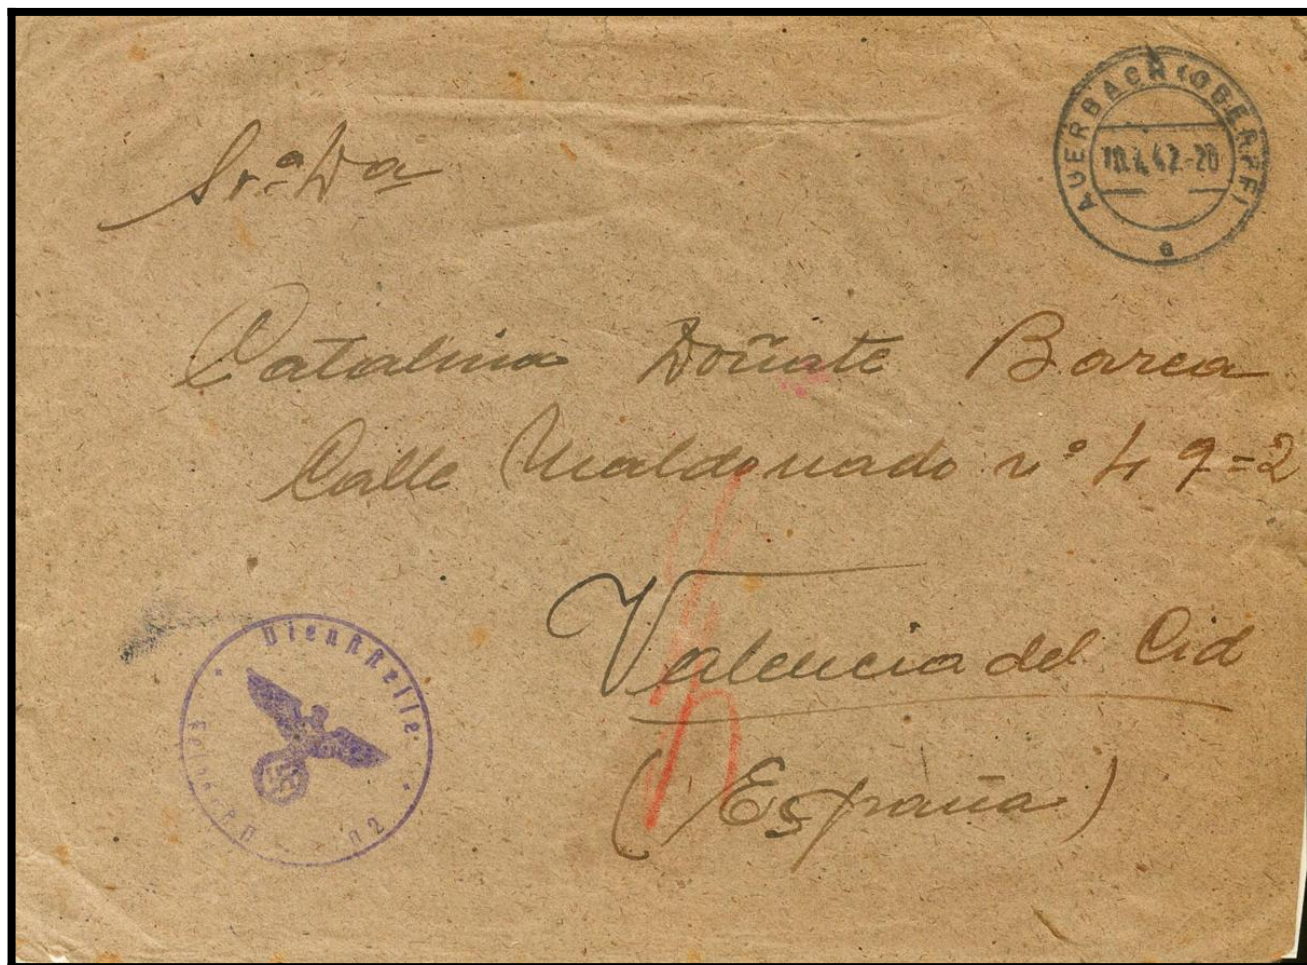 AUERBACH (OBERPF)
42-20
a
Sr.ª Dª
Catalina Doñate Barea
Calle Maldonado nº 49=2
Valencia del Cid
(España)
Dienststelle
Feldpost